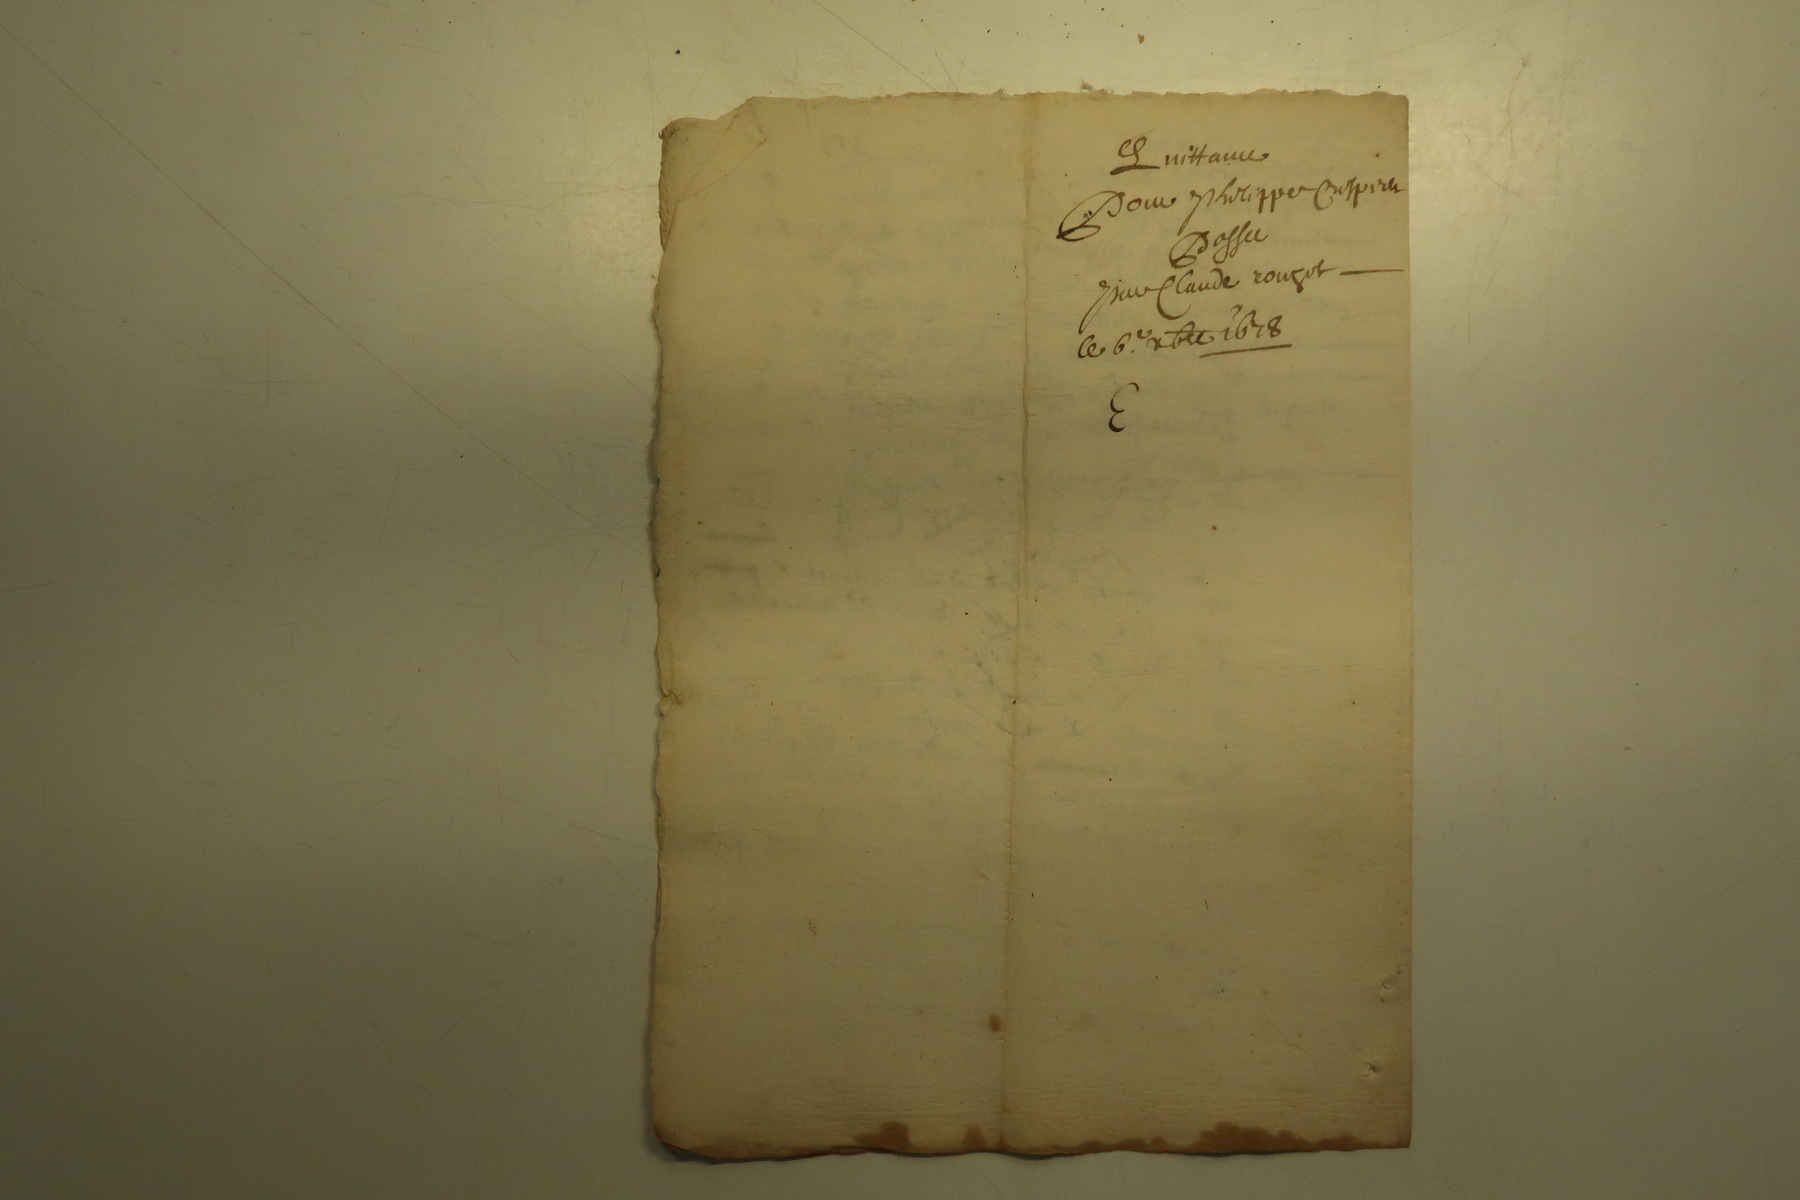 Quittance
Pour Philippe Crespin
Passée
par Claude rouget
le 6.e xbre 1678
E